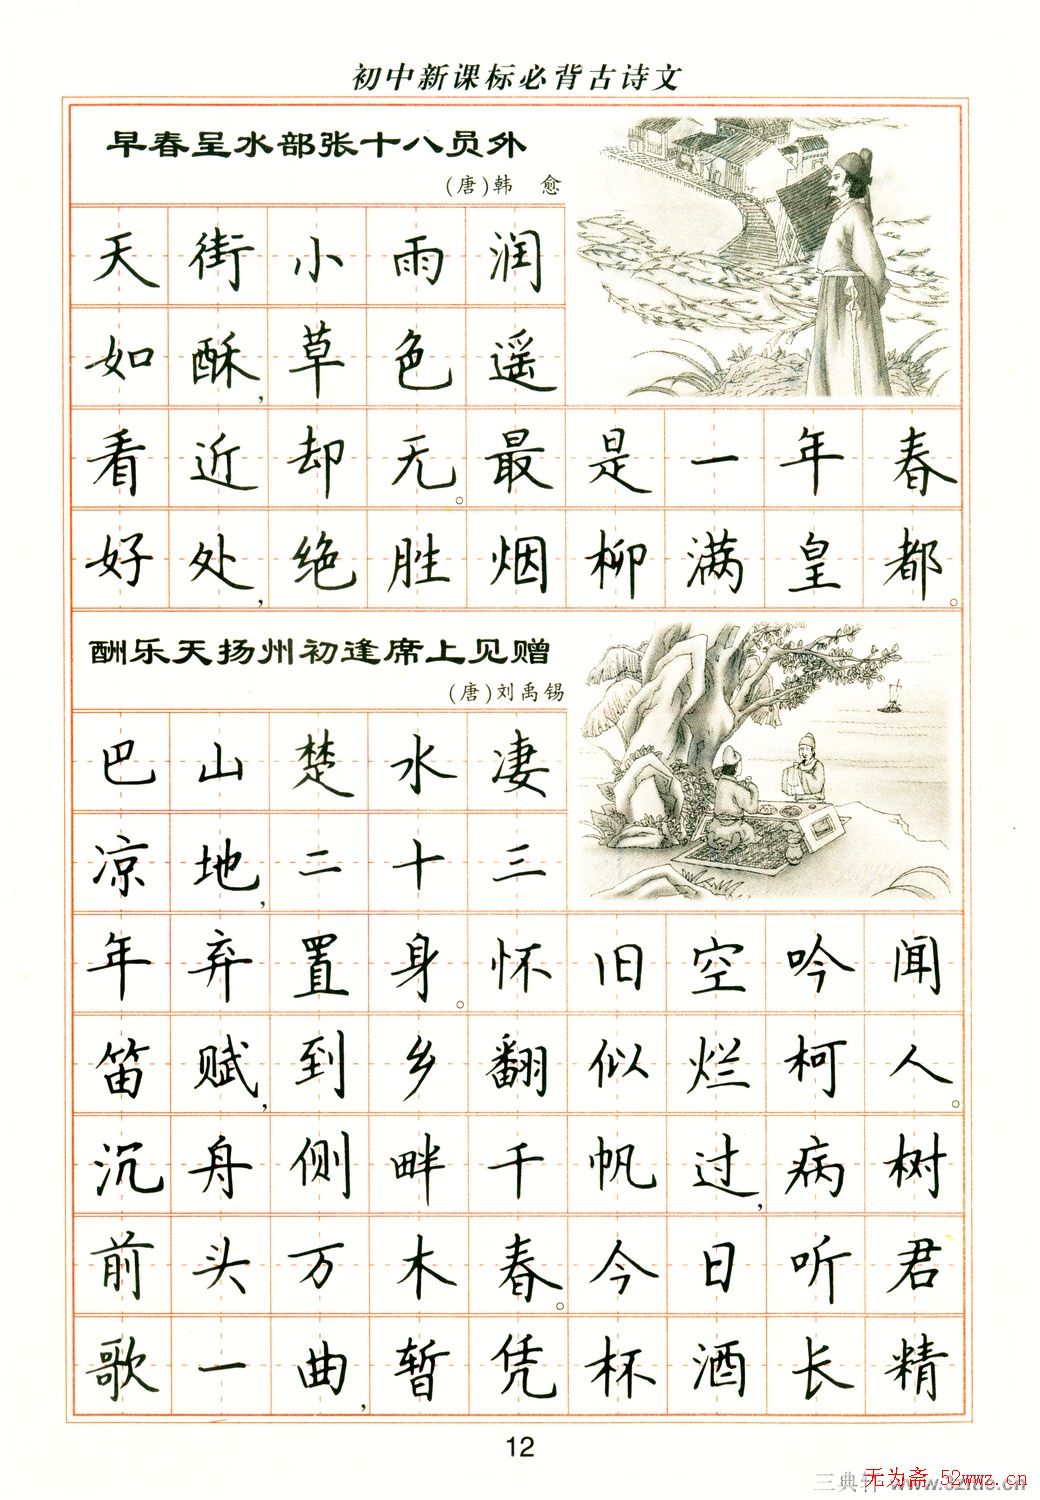 初中新课标必背古诗文
早春呈水部张十八员外
(唐)韩 愈
天街小雨润
如酥,草色遥
看近却无。最是一年春
好处,绝胜烟柳满皇都。
酬乐天扬州初逢席上见赠
(唐)刘禹锡
巴山楚水凄
凉地,二十三
年弃置身。怀旧空吟闻
笛赋,到乡翻似烂柯人。
沉舟侧畔千帆过,病树
前头万木春。今日听君
歌一曲,暂凭杯酒长精
12
无为斋 52wwz.cn